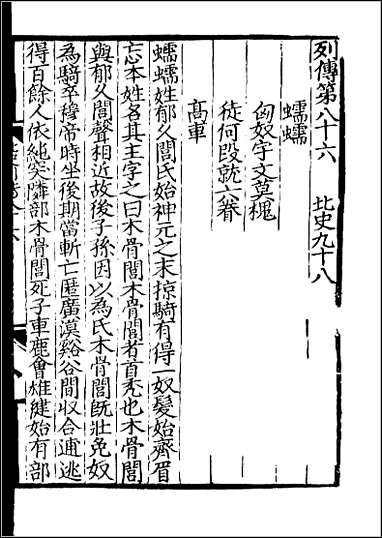 列傳第八十六　北史九十八
蠕蠕
匈奴宇文莫槐
徒何段就六眷
高車
蠕蠕姓郁久閭氏始神元之末掠騎有得一奴髮始齊眉
忘本姓名其主字之曰木骨閭木骨閭者首秃也木骨閭
與郁久閭聲相近故後子孫因以為氏木骨閭旣壯免奴
為騎卒穆帝時坐後期當斬亡匿廣漠谿谷間收合逋逃
得百餘人依純突隣部木骨閭死子車鹿會雄健始有部